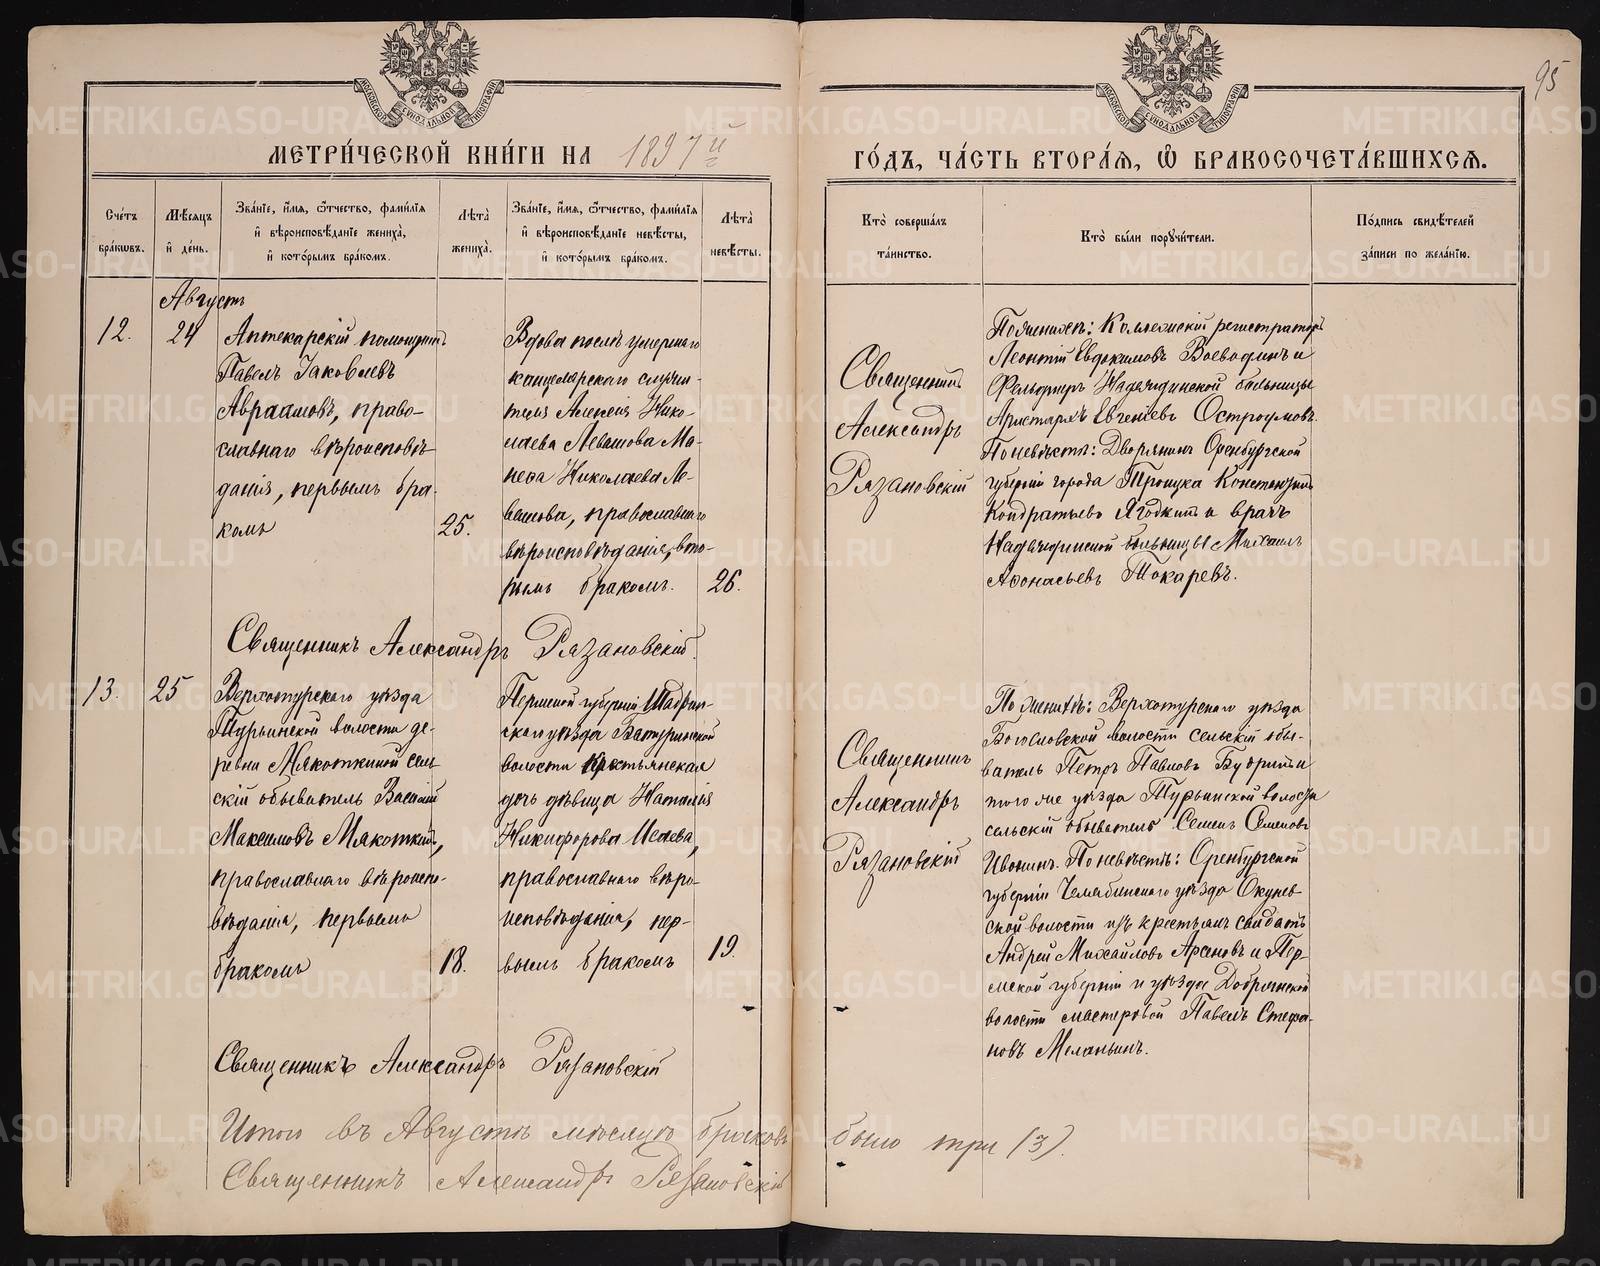 95
МЕТРИ́ЧЕСКОЙ КНИ́ГИ НА 1897 й
ГО́ДЪ, ЧА́СТЬ ВТОРА́Я, Ѡ БРАКОСОЧЕТА́ВШИХСЯ.
Сче́тъ бра́кѡвъ.
Мѣ́сяцъ и҆ де́нь.
Зва́нїе, и҆́мя, ѻ҆́тчество, фами́лїя
и҆ вѣроисповѣ́данїе жениха̀,
и҆ кото́рымъ бра́комъ.
Лѣта̀ жениха̀.
Зва́нїе, и҆́мя, ѻ҆́тчество, фами́лїя
и҆ вѣроисповѣ́данїе невѣ́сты,
и҆ кото́рымъ бра́комъ.
Лѣта̀ невѣ́сты.
Кто̀ соверша́лъ та́инство.
Кто̀ бы́ли порꙋчи́тели.
По́дпись свидѣ́телей
за́писи по жела́нїю.
Августъ
12.
24
Аптекарскій помощникъ
Павелъ Іаковлевъ
Авраамовъ, право-
славнаго вѣроисповѣ-
данія, первымъ бра-
комъ
25.
Вдова послѣ умершаго
канцелярскаго служи-
теля Алексія Нико-
лаева Левашова Ма-
Николаева Ле-
вашова, православнаго
вѣроисповѣданія, вто-
рымъ бракомъ.
26.
Священникъ
Александръ
Рязановскій
По женихѣ: Коллежскій регистраторъ
Леонтій Евдокимовъ Воеводинъ и
Фельдшеръ Надеждинской больницы
Аристархъ Евгеніевъ Остроумовъ.
По невѣстѣ: Дворянинъ Оренбургской
губерніи города Троицка Константинъ
Кондратьевъ Ягодкинъ и врачъ
Надеждинской больницы Михаилъ
Аѳонасьевъ Токаревъ.
Священникъ Александръ Рязановскій.
13.
25
Верхотурскаго уѣзда
Турьинской волости де-
ревни Мякоткиной сель-
скій обыватель Василій
Максимовъ Мякоткинъ,
православнаго вѣроиспо-
вѣданія, первымъ
бракомъ
18.
Пермской губерніи Шадрин-
скаго уѣзда Батуринской
волости крестьянская
дочь дѣвица Наталія
Никифорова Исаева,
православнаго вѣро-
исповѣданія, пер-
вымъ бракомъ
19.
Священникъ
Александръ
Рязановскій
По женихѣ: Верхотурскаго уѣзда
Богословской волости сельскій обы-
ватель Петръ Павловъ и
того же уѣзда Турьинской волости
сельскій обыватель Семенъ Семеновъ
Ивонинъ. По невѣстѣ: Оренбургской
губерніи Челябинскаго уѣзда Окунев-
ской волости изъ крестьянъ солдатъ
Андрей Михайловъ и Пер-
мской губерніи и уѣзда Добрянской
волости мастеровой Павелъ Стефа-
новъ Меланьинъ.
Священникъ Александръ Рязановскій
Итого въ Августѣ мѣсяцѣ браковъ было три (3).
Священникъ Александръ Рязановскій
METRIKI.GASO-URAL.RU